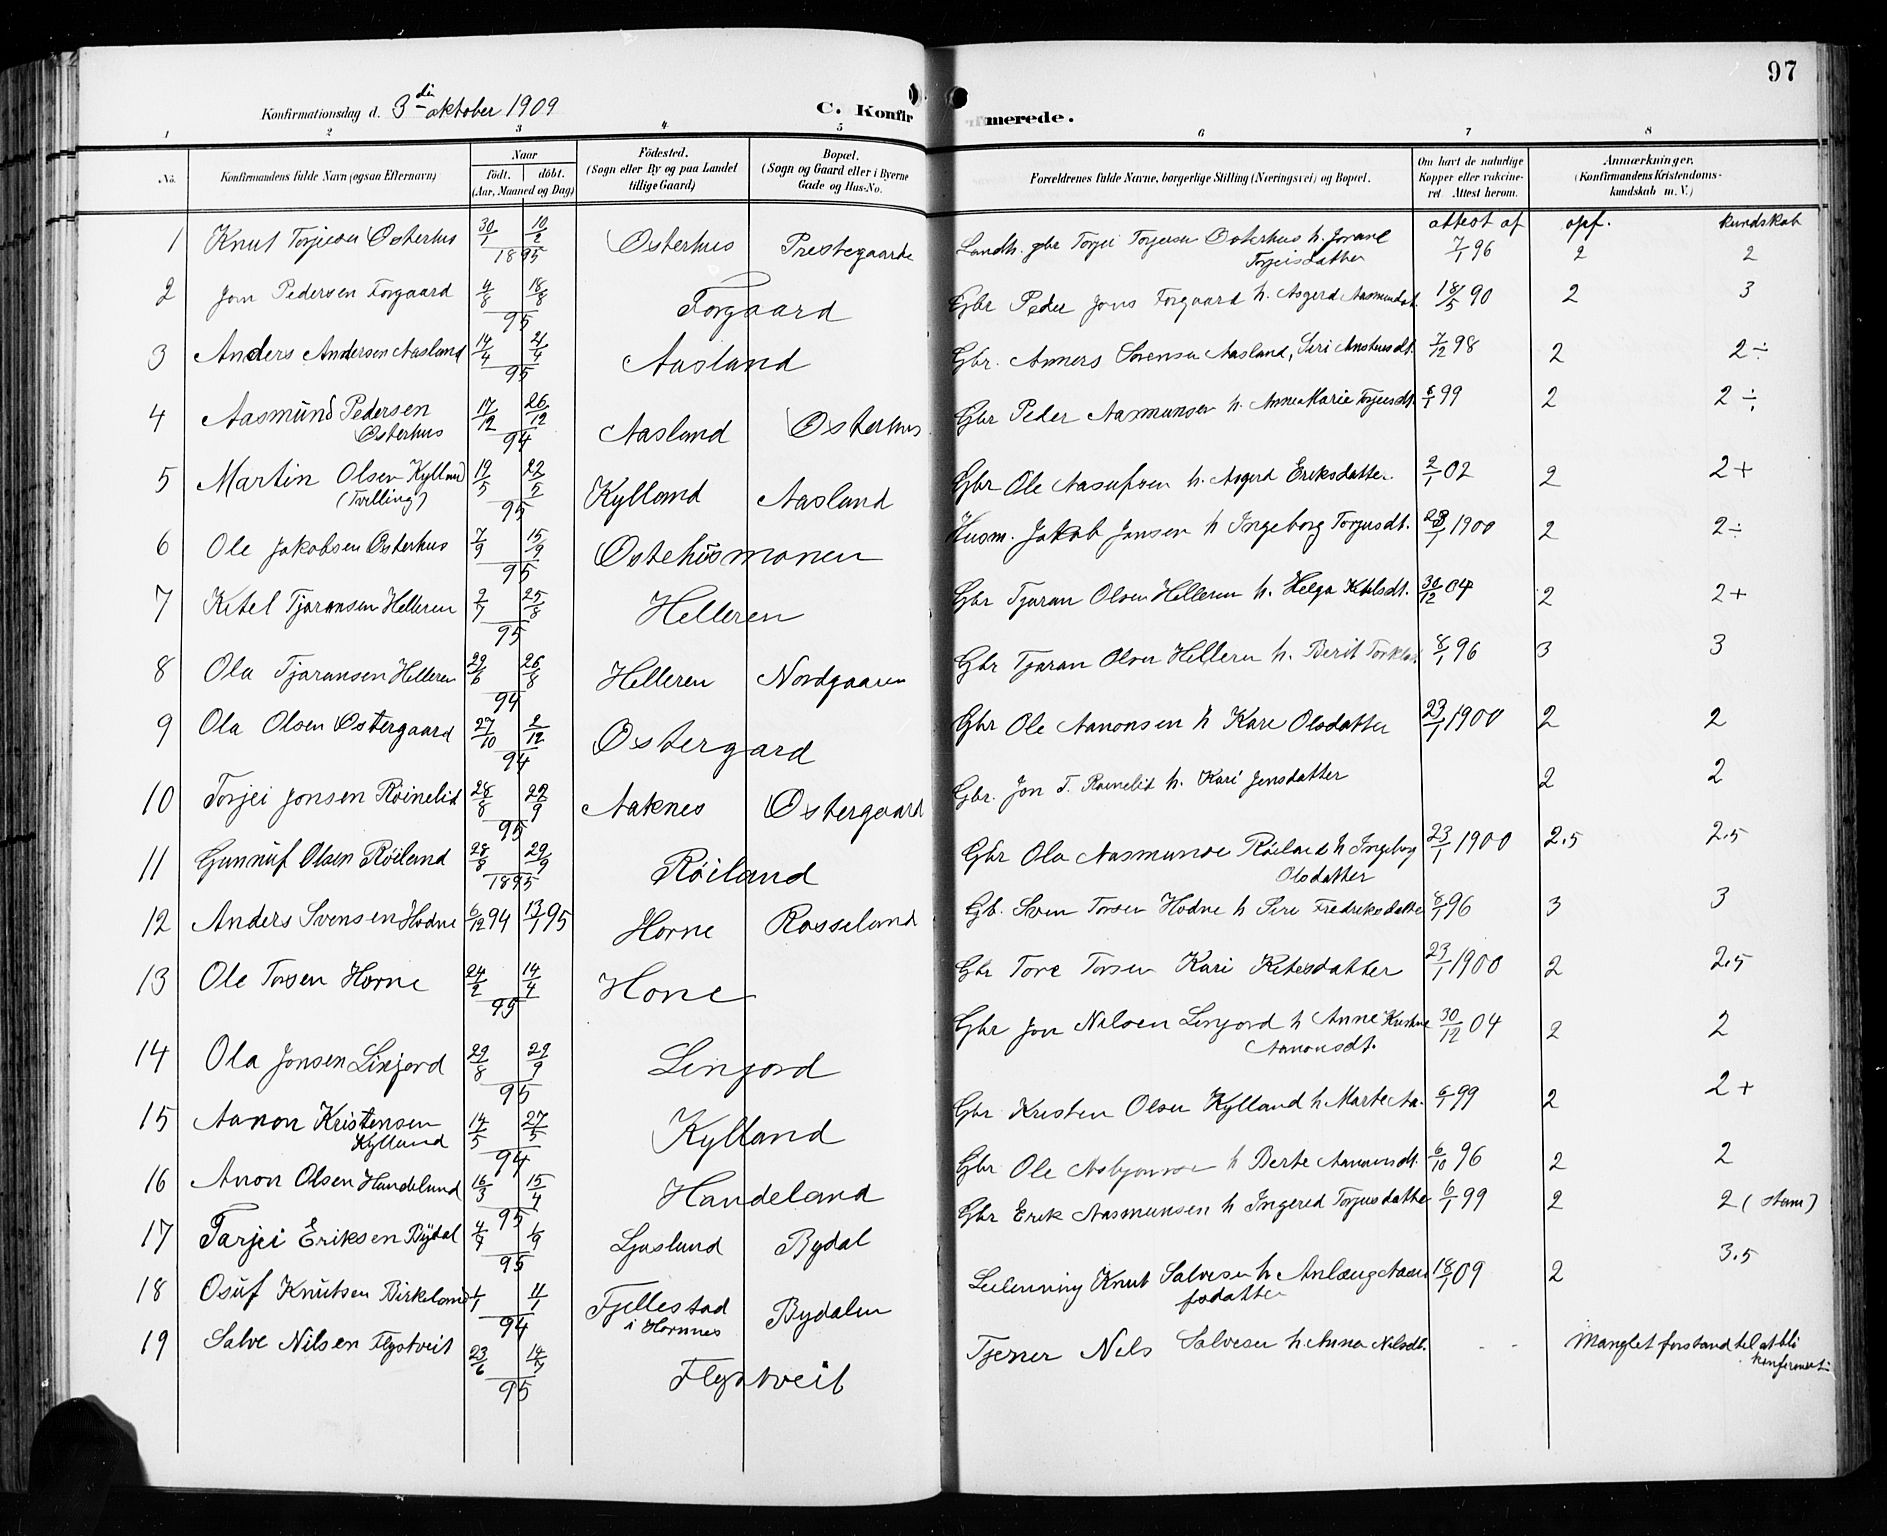 97
Konfirmationsdag d. 3die oktober 1909
C. Konfirmerede.
1 2 3 4 5 6 7 8
No.
Konfirmandens fulde Navn (ogsaa Efternavn)
Naar
født. døbt.
(Aar, Maaned og Dag)
Fødested.
(Sogn eller By og paa Landet
tillige Gaard)
Bopæl.
(Sogn og Gaard eller i Byerne
Gade og Hus-No.
Forældrenes fulde Navne, borgerlige Stilling (Næringsvei) og Bopæl.
Om havt de naturlige
Kopper eller vakcine-
ret. Attest herom.
Anmærkninger.
(Konfirmandens Kristendoms-
kundskab m. V.)
attest af opf. kundskab
1 Knut Torjesen Osterhus 30/1 10/2 1895 Osterhus Prestegaarde Landh. gbr Torjei Torjesen Osterhus h. Jorand Torjeisdatter 7/1 96 2 2
2 Jon Pedersen Forgaard 4/8 18/8 95 Forgaard Gbr Peder Jons Forgaard h. Asgerd Aasmundsdt. 18/5 90 2 3
3 Anders Andersen Aasland 14/4 21/4 95 Aasland Gbr. Anners Sorensen Aasland, Siri 7/12 98 2 2÷
4 Aasmund Pedersen Osterhus 17/12 26/12 94 Aasland Osterhus Gbr Peder Aasmunsen h. Anne Marie Torjusdt. 6/1 99 2 2÷
5 Martin Olsen Kylland (Tvilling) 19/5 22/5 95 Kylland Aasland Gbr Ole Aasufsen h. Asgerd Eriksdatter 2/1 02 2 2+
6 Ole Jakobsen Osterhus 7/9 15/9 95 Ostehusmonen Husm. Jakob Jansen h Ingeborg Torjusdt. 23/1 1900 2 2÷
7 Ketel Tjaransen Helleren 2/7 25/8 95 Helleren Gbr Tjaran Olsen Helleren h. Helga Ketilsdt. 30/12 04 2 2+
8 Ola Tjaransen Helleren 29/6 26/8 94 Helleren Nordgaaren Gbr Tjaran Olsen Helleren h. Berit 8/1 96 3 3
9 Ola Olsen Ostergaard 27/10 2/12 94 Ostergard Gbr Ole Aanonsen h Kari Olsdatter 23/1 1900 2 2
10 Torjei Jonsen Røinelid 28/8 22/9 95 Aaknes Ostergaard Gbr. Jon T. Røinelid h. Kari Jensdatter 2 2
11 Gunnuf Olsen Røiland 28/8 29/9 1895 Røiland Gbr Ola Aasmunse Røiland h Ingeborg Olsdatter 23/1 1900 2.5 2.5
12 Anders Svensen Hodne 6/12 94 13/1 95 Horne Rosseland Gb. Sven Torsen Hodne h Siri Fredriksdatter 8/1 96 3 3
13 Ole Torsen Horne 24/2 14/4 95 Hone Gbr Tore Torsen Kari Ketesdatter 23/1 1900 2 2.5
14 Ola Jonsen Linjord 29/8 29/9 95 Linjord Gbr Jon Nilsen Linjord h Anne Kristine Aanonsdt. 30/12 04 2 2
15 Aanon Kristensen Kylland 14/5 27/5 94 Kylland Gbr Kristen Olsen Kylland h Marte Aa. 6/1 99 2 2+
16 Anon Olsen Handeland 16/3 15/4 95 Handeland Gbr Ole h Berte Aanonsdt. 6/10 96 2 2
17 Tarjei Eriksen Bydal 4/7 1/9 95 Ljosland Bydal Gbr Erik Aasmunsen h Ingerid Torjusdatter 6/1 99 2 2 (stam)
18 Osuf Knutsen Birkeland 1/1 11/1 94 Fjellestad i Hornnes Bydalen Knut Salvesen h Anlaug 18/1 09 2 3.5
19 Salve Nilsen Flystveit 23/6 14/7 95 Flystveit Tjener Nils Salvesen h. Anna Nilsdt. - - Manglet forstand til at bli konfirmert